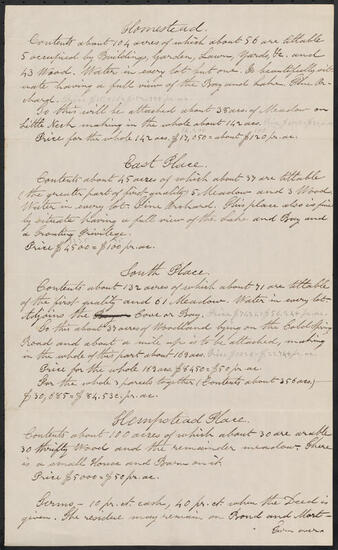 Homestead.
Contents about 104 acres of which about 56 are tillable
5 occupied by Buildings, Garden, Lawn, Yards, &c. and
43 Wood. Water in every lot but one. Is beautifully sit-
uate having a full view of the Bay and Lake. Fine Or-
chard.
To this will be attached about 38 acs. of Meadow on
Little Neck making in the whole about 142 acs.
Price for the whole 142 acs. $17,050 = about $120 pr. ac.
East Place.
Contents about 45 acres of which about 37 are tillable
(the greater part of first quality) 5 Meadow and 3 Wood
Water in every lot. Fine Orchard. This place also is fine-
ly situate having a full view of the Lake and Bay and
a Boating Privilege.
Price $4500 = $100 pr. ac.
South Place.
Contents about 132 acres of which about 71 are tillable
of the first quality and 61 Meadow. Water in every lot
Adjoins the Cove or Bay.
To this about 37 acres of Woodland lying on the Cold Spring
Road and about a mile up is to be attached, making
in the whole of this part about 169 acs.
Price for the whole 169 acs. $8450 = $50 pr. ac.
For the whole 3 parcels together (Contents about 356 acs)
$30,085 = $84.53c. pr. ac.
Hempstead Place.
Contents about 100 acres of which about 30 are arable
30 thrifty Wood and the remainder meadow. There
is a small House and Barn on it.
Price $5000 = $50 pr. ac.
Terms - 10 pr. ct. cash, 40 pr. ct. when the Deed is
given. The residue may remain on Bond and Mort-
Turn over.